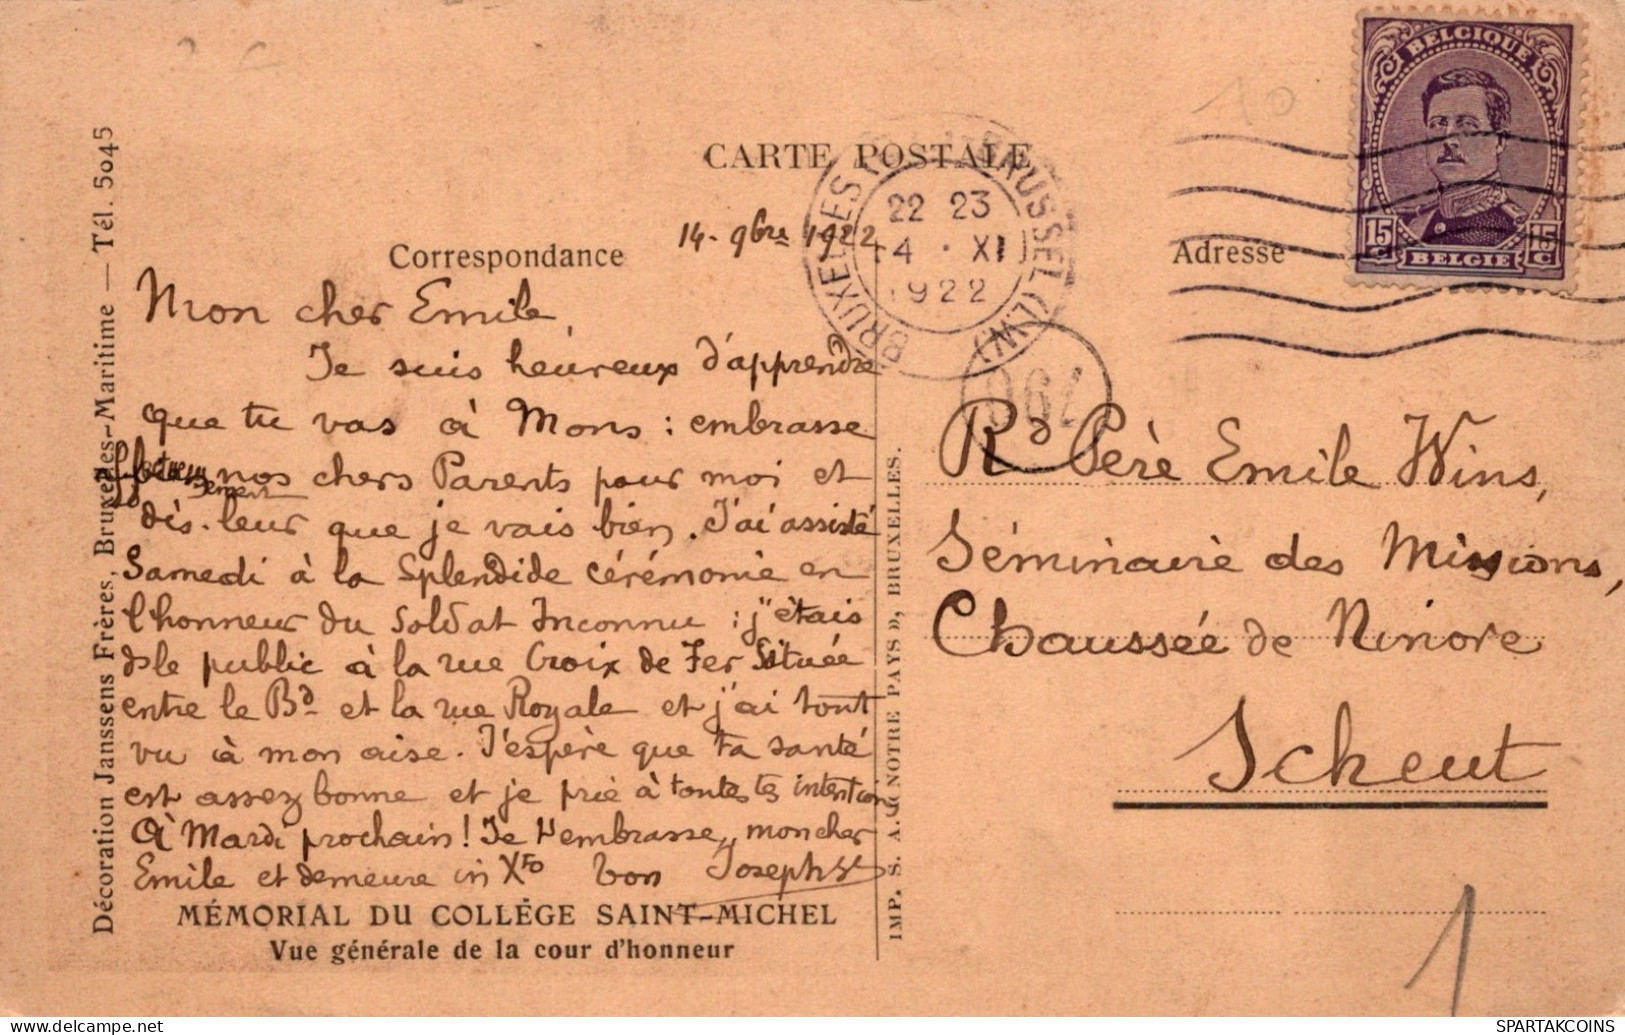 BELGIQUE
15 C 15 C
BELGIE
CARTE POSTALE
BRUXELLES BRUSSEL (L.W)
22 23
14 · XI
1922
Correspondance
14 - 9bre 1922
Adresse
Mon cher Emile,
Je suis heureux d'apprendre
que tu vas à Mons : embrasse
affectueusement nos chers Parents pour moi et
dis-leur que je vais bien. J'ai assisté
Samedi à la splendide cérémonie en
l'honneur du Soldat Inconnu : j'étais
le public à la rue Croix de Fer Située
entre le Bd et la rue Royale et j'ai tout
vu à mon aise. J'espère que ta santé
est assez bonne et je prie à toutes tes intentions
à Mardi prochain ! Je t'embrasse, mon cher
Emile et demeure in Xto ton Joseph
MÉMORIAL DU COLLÉGE SAINT-MICHEL
Vue générale de la cour d'honneur
Décoration Janssens Frères, Bruxelles-Maritime — Tél. 5045
IMP. S. A. NOTRE PAYS D, BRUXELLES.
Rd Père Emile Wins,
Séminaire des Missions,
Chaussée de Ninove
Scheut
1
10
SPARTAKCOINS.com
SPARTAKCOINS